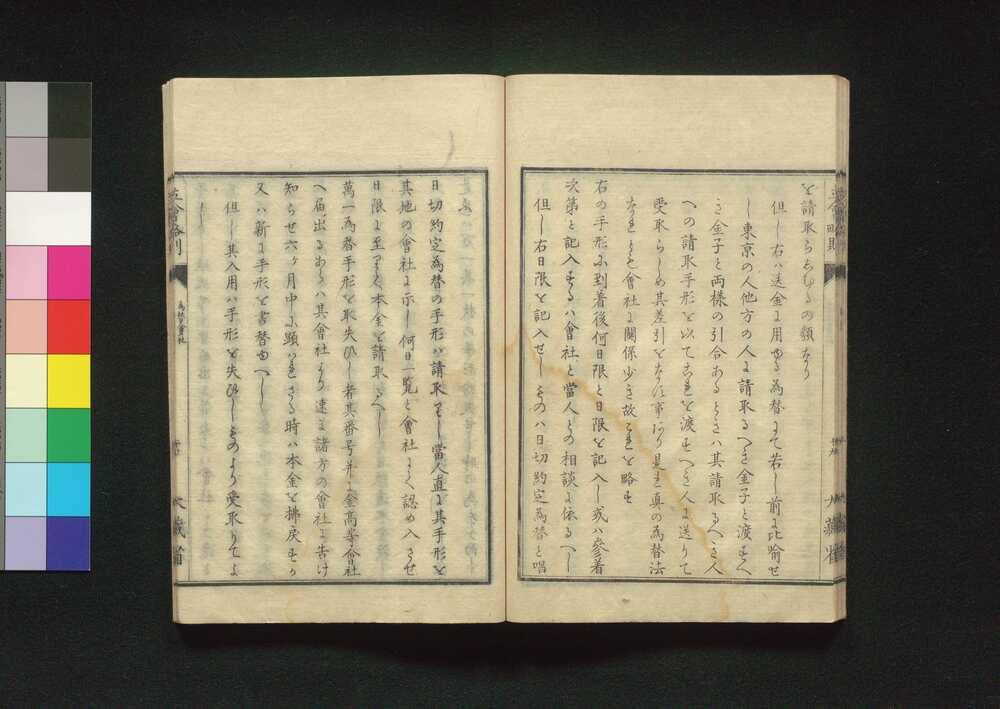 を請取らしむるの類なり
但し右ハ送金に用ゆる為替にて若し前に比喩せ
し東京の人他方の人に請取るへき金子と渡すへ
き金子と両様の引合あるときハ其請取るへき人
への請取手形を以てこれを渡すへき人に送りて
受取らしめ其差引をなす事あり是は真の為替法
なれとも會社に関係少き故これを略す
右の手形に到着後何日限と日限を記入し或ハ参着
次第と記入するハ會社と當人との相談に依るへし
但し右日限を記入せしものハ日切約定為替と唱
日切約定為替の手形ハ請取りし當人直に其手形を
其地の會社に示し何日一覧と會社にて認め入させ
日限に至りて本金を請取るへし
萬一為替手形を取失ひし者其番号并に金高等會社
へ届出るあらハ其會社より速に諸方の會社に告け
知らせ六ヶ月中に顕ハれさる時ハ本金を拂戻すか
又ハ新に手形を書替ゆへし
但し其入用ハ手形を失ひしものより受取りてよ
大藏省
大藏省